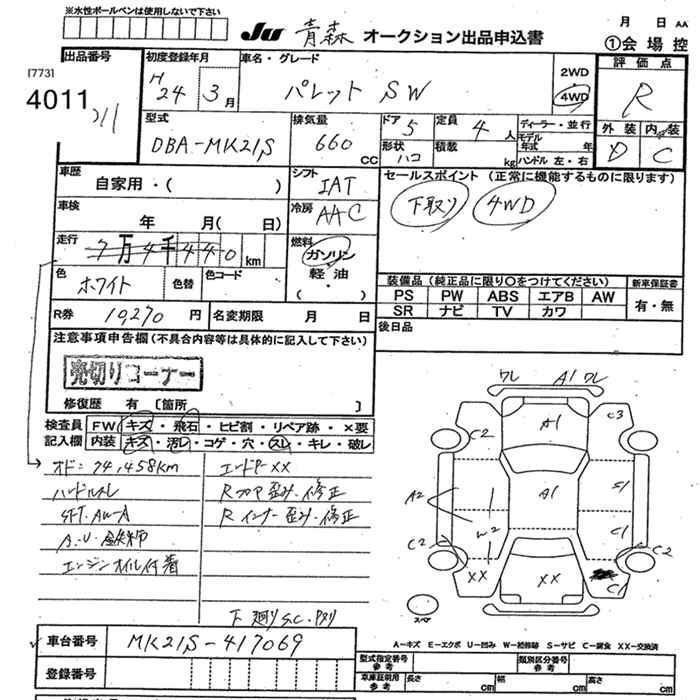 ※水性ボールペンは使用しないで下さい
JU 青森 オークション出品申込書
月 日 AA
①会場控
[773]
出品番号 4011
初度登録年月 H 24年 3月
車名・グレード パレット SW
2WD
4WD
評価点 R
外装 D 内装 C
型式 DBA-MK21S
排気量 660 CC
ドア 5
形状 ハコ
定員 4人
積載 kg
ディーラー・並行
モデル年式 年
ハンドル 左・右
車歴 自家用・( )
シフト IAT
セールスポイント (正常に機能するものに限ります)
下取り 4WD
車検 年 月( 日)
冷房 AAC
走行 7万4千440km
燃料 ガソリン
軽油
・( )
色 ホワイト 色替 色コード
装備品 (純正品に限り○をつけてください) 新車保証書
PS PW ABS エアB AW
SR ナビ TV カワ
有・無
R券 10,270円
名変期限 月 日
後日品
注意事項申告欄(不具合内容等は具体的に記入して下さい)
売切りコーナー
修復歴 有 〔箇所 〕
検査員記入欄 FW キズ・飛石・ヒビ割・リペア跡・×要
内装 キズ・汚レ・コゲ・穴・スレ・キレ・破レ
オド:74,458km
ハンドルスレ
SFT.AW-A
エンジンオイル付着
エンドP XX
Rフロア歪み.修正
Rインナー歪み.修正
下廻り S.C.
ワレ A1 ワレ
A1
C2 C3
A2 A1 S1
W2 C1
C2 C2
XX XX C1
スペア
A-キズ E-エクボ U-凹み W-補修跡 S-サビ C-腐食 XX-交換済
車台番号 MK21S-417069
登録番号
型式指定番号参考 類別区分番号参考
車庫証明用参考 長さ cm 幅 cm 高さ cm